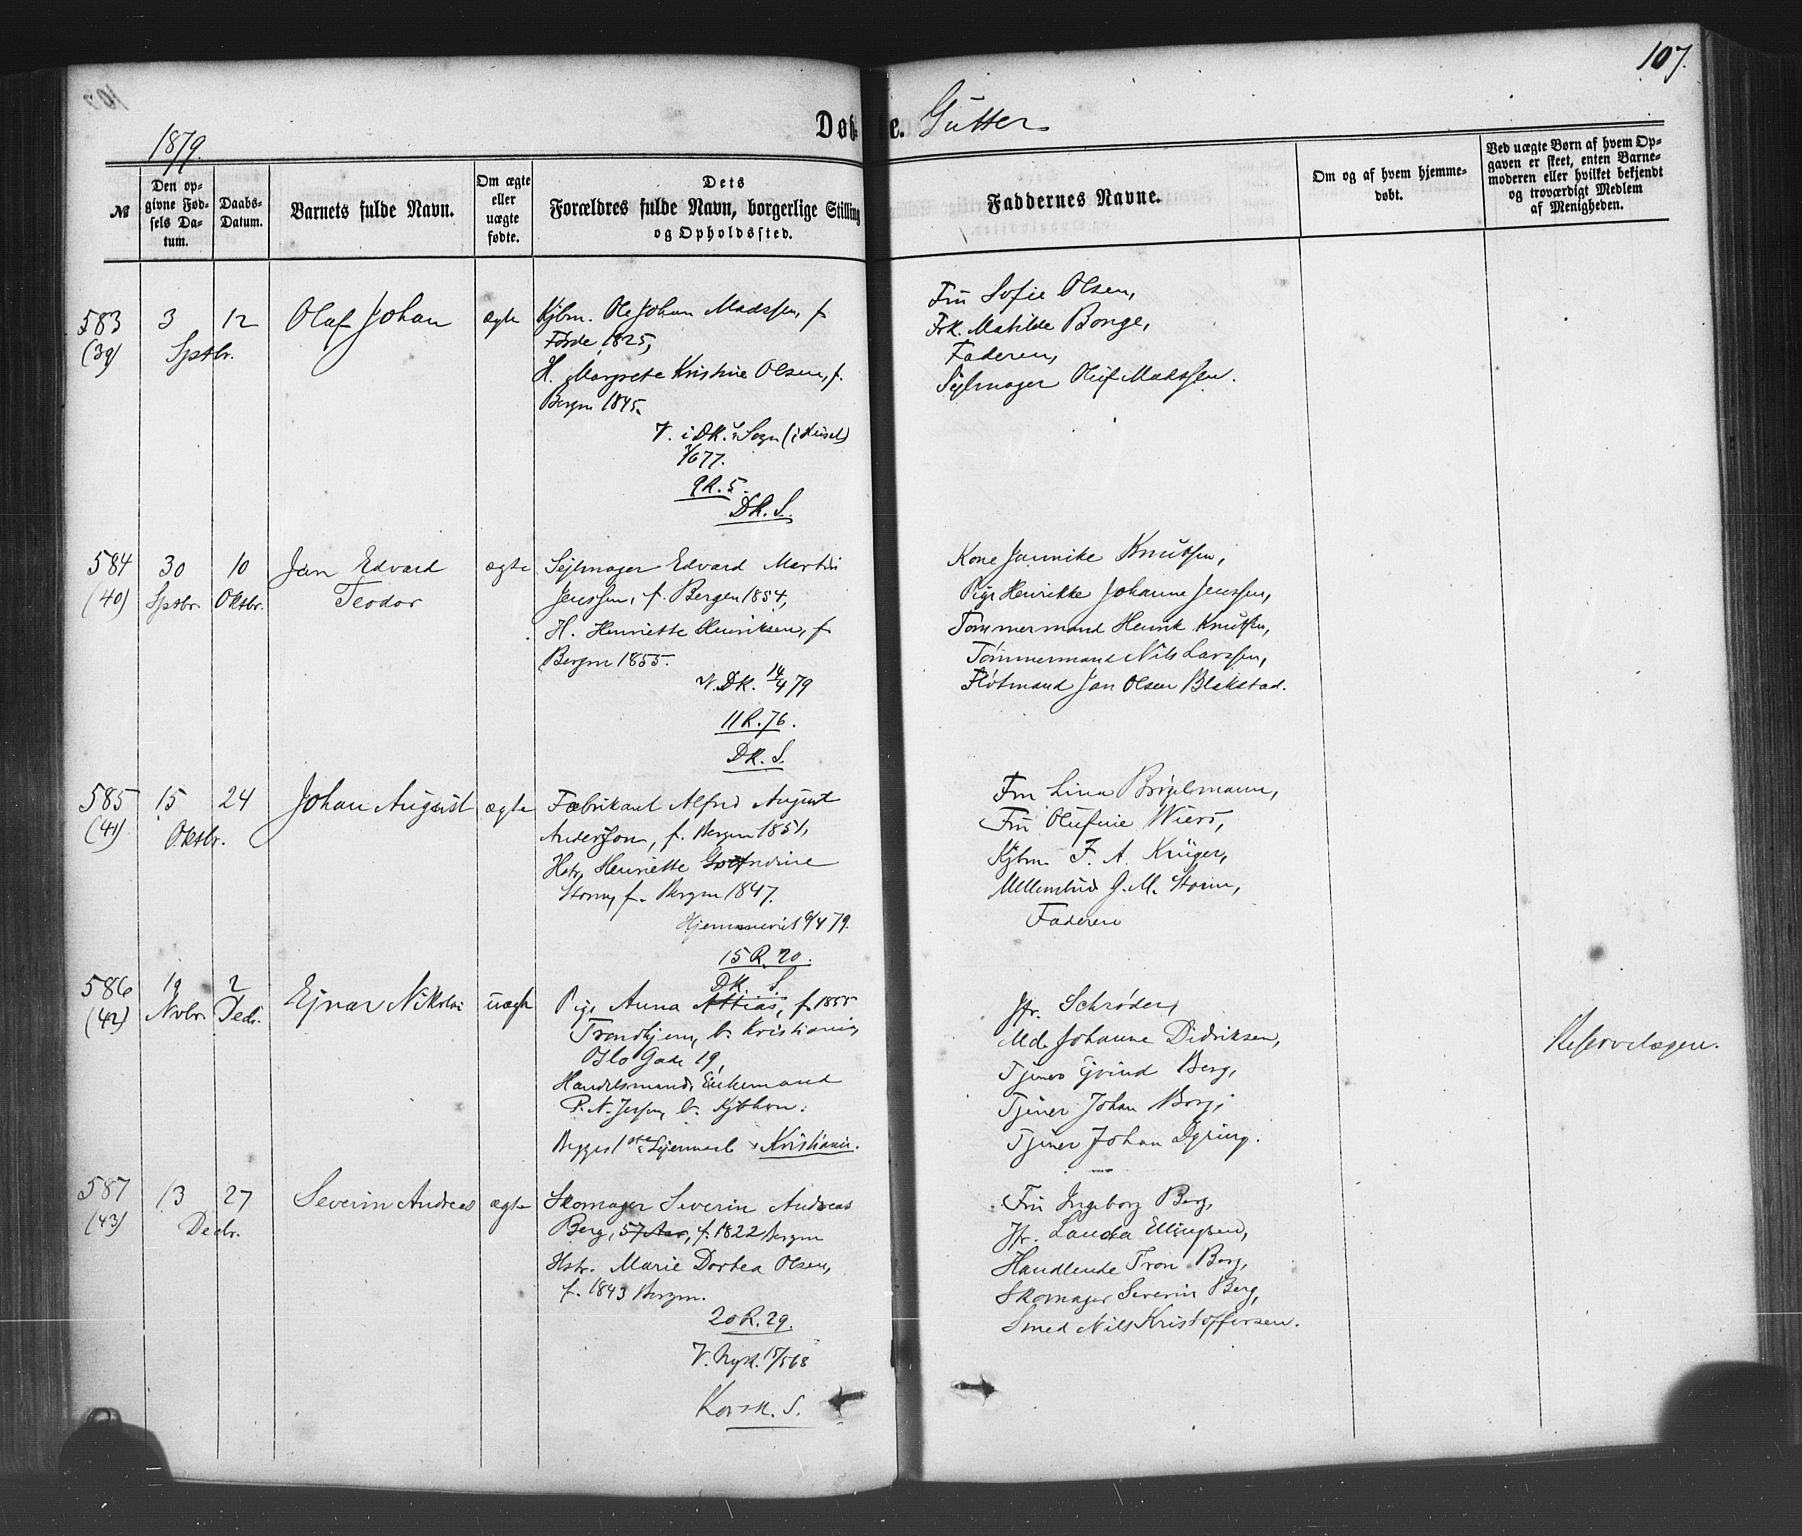 107.
Døbte. Gutter
1879.
№
Den opgivne Fødsels Datum.
Daabs-Datum.
Barnets fulde Navn.
Om ægte eller uægte fødte.
Dets Forældres fulde Navn, borgerlige Stilling og Opholdssted.
Faddernes Navne.
Om og af hvem hjemmedøbt.
Ved uægte Børn af hvem Opgaven er skeet, enten Barnemoderen eller hvilket bekjendt og troværdigt Medlem af Menigheden.
583
(39)
3 12
Sptbr.
Olaf Johan
ægte
Kjbm. Ole Johan Madssen, f.
Førde 1825,
H. Margrete Kristine Olsen, f.
Bergen 1845.
V. i DK.s Sogn (i Huset)
677.
9 R. 5.
DK. S.
Fru Sofie Olsen,
Frk. Matilde Bonge,
Faderen,
Sejlmager Oluf Madssen.
584
(40)
30 Sptbr.
10 Oktbr.
Jan Edvard
Teodor
ægte
Sejlmager Edvard Martin
Jenssen, f. Bergen 1854,
H. Henriette Henriksen, f.
Bergen 1855.
V. DK. 14/4 79
11 R. 76.
DK. S.
Kone Jannike Knutsen,
Pige Henrikke Johanne Jenssen,
Tømmermand Henrik Knutsen,
Tømmermand Nils Larssen,
Flotmand Jan Olsen Blakstad.
585
(41)
15 24
Oktbr.
Johan August
ægte
Fabrikant Alfred August
Andersson, f. Bergen 1851,
Hstr. Henriette Andrine
Storm, f. Bergen 1847.
Hjemmeviet 9/4 79.
15 R. 20.
DK. S.
Fru Lina Brøgelmann,
Fru Olufine Wiers,
Kjbm. F. A. Krüger,
G. M. Storm,
Faderen
586
(42)
19 Nvbr.
2 Decbr.
Ejnar Nikolai
uægte
Pige Anna Attias, f. 1855
Trondhjem, b. Kristiania,
Oslo Gade 19,
Handelsmand, Enkemand
P. N. Jessen, b. Kjbhvn.
Begges 1ste Lejermaal. Kristiania.
Jfr. Schrøder,
Md. Johanne Didriksen,
Tjener Ejvind Berg,
Tjener Johan Borg,
Tjener Johan Dyring.
Reservelægen.
587
(43)
13 27
Decbr.
Severin Andreas
ægte
Skomager Severin Andreas
Berg, 57 Aar, f. 1822 Bergen
Hstr. Marie Dortea Olsen,
f. 1843 Bergen.
20 R. 29.
V. Nyk. 15/5 68
Korsk. S.
Fru Ingeborg Berg,
Jfr. Ellingsen,
Handlende Tron Berg,
Skomager Severin Berg,
Smed Nils Kristoffersen.